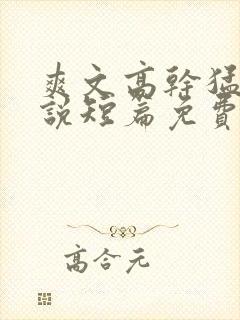 爽文高幹猛
說短篇免費
高合元